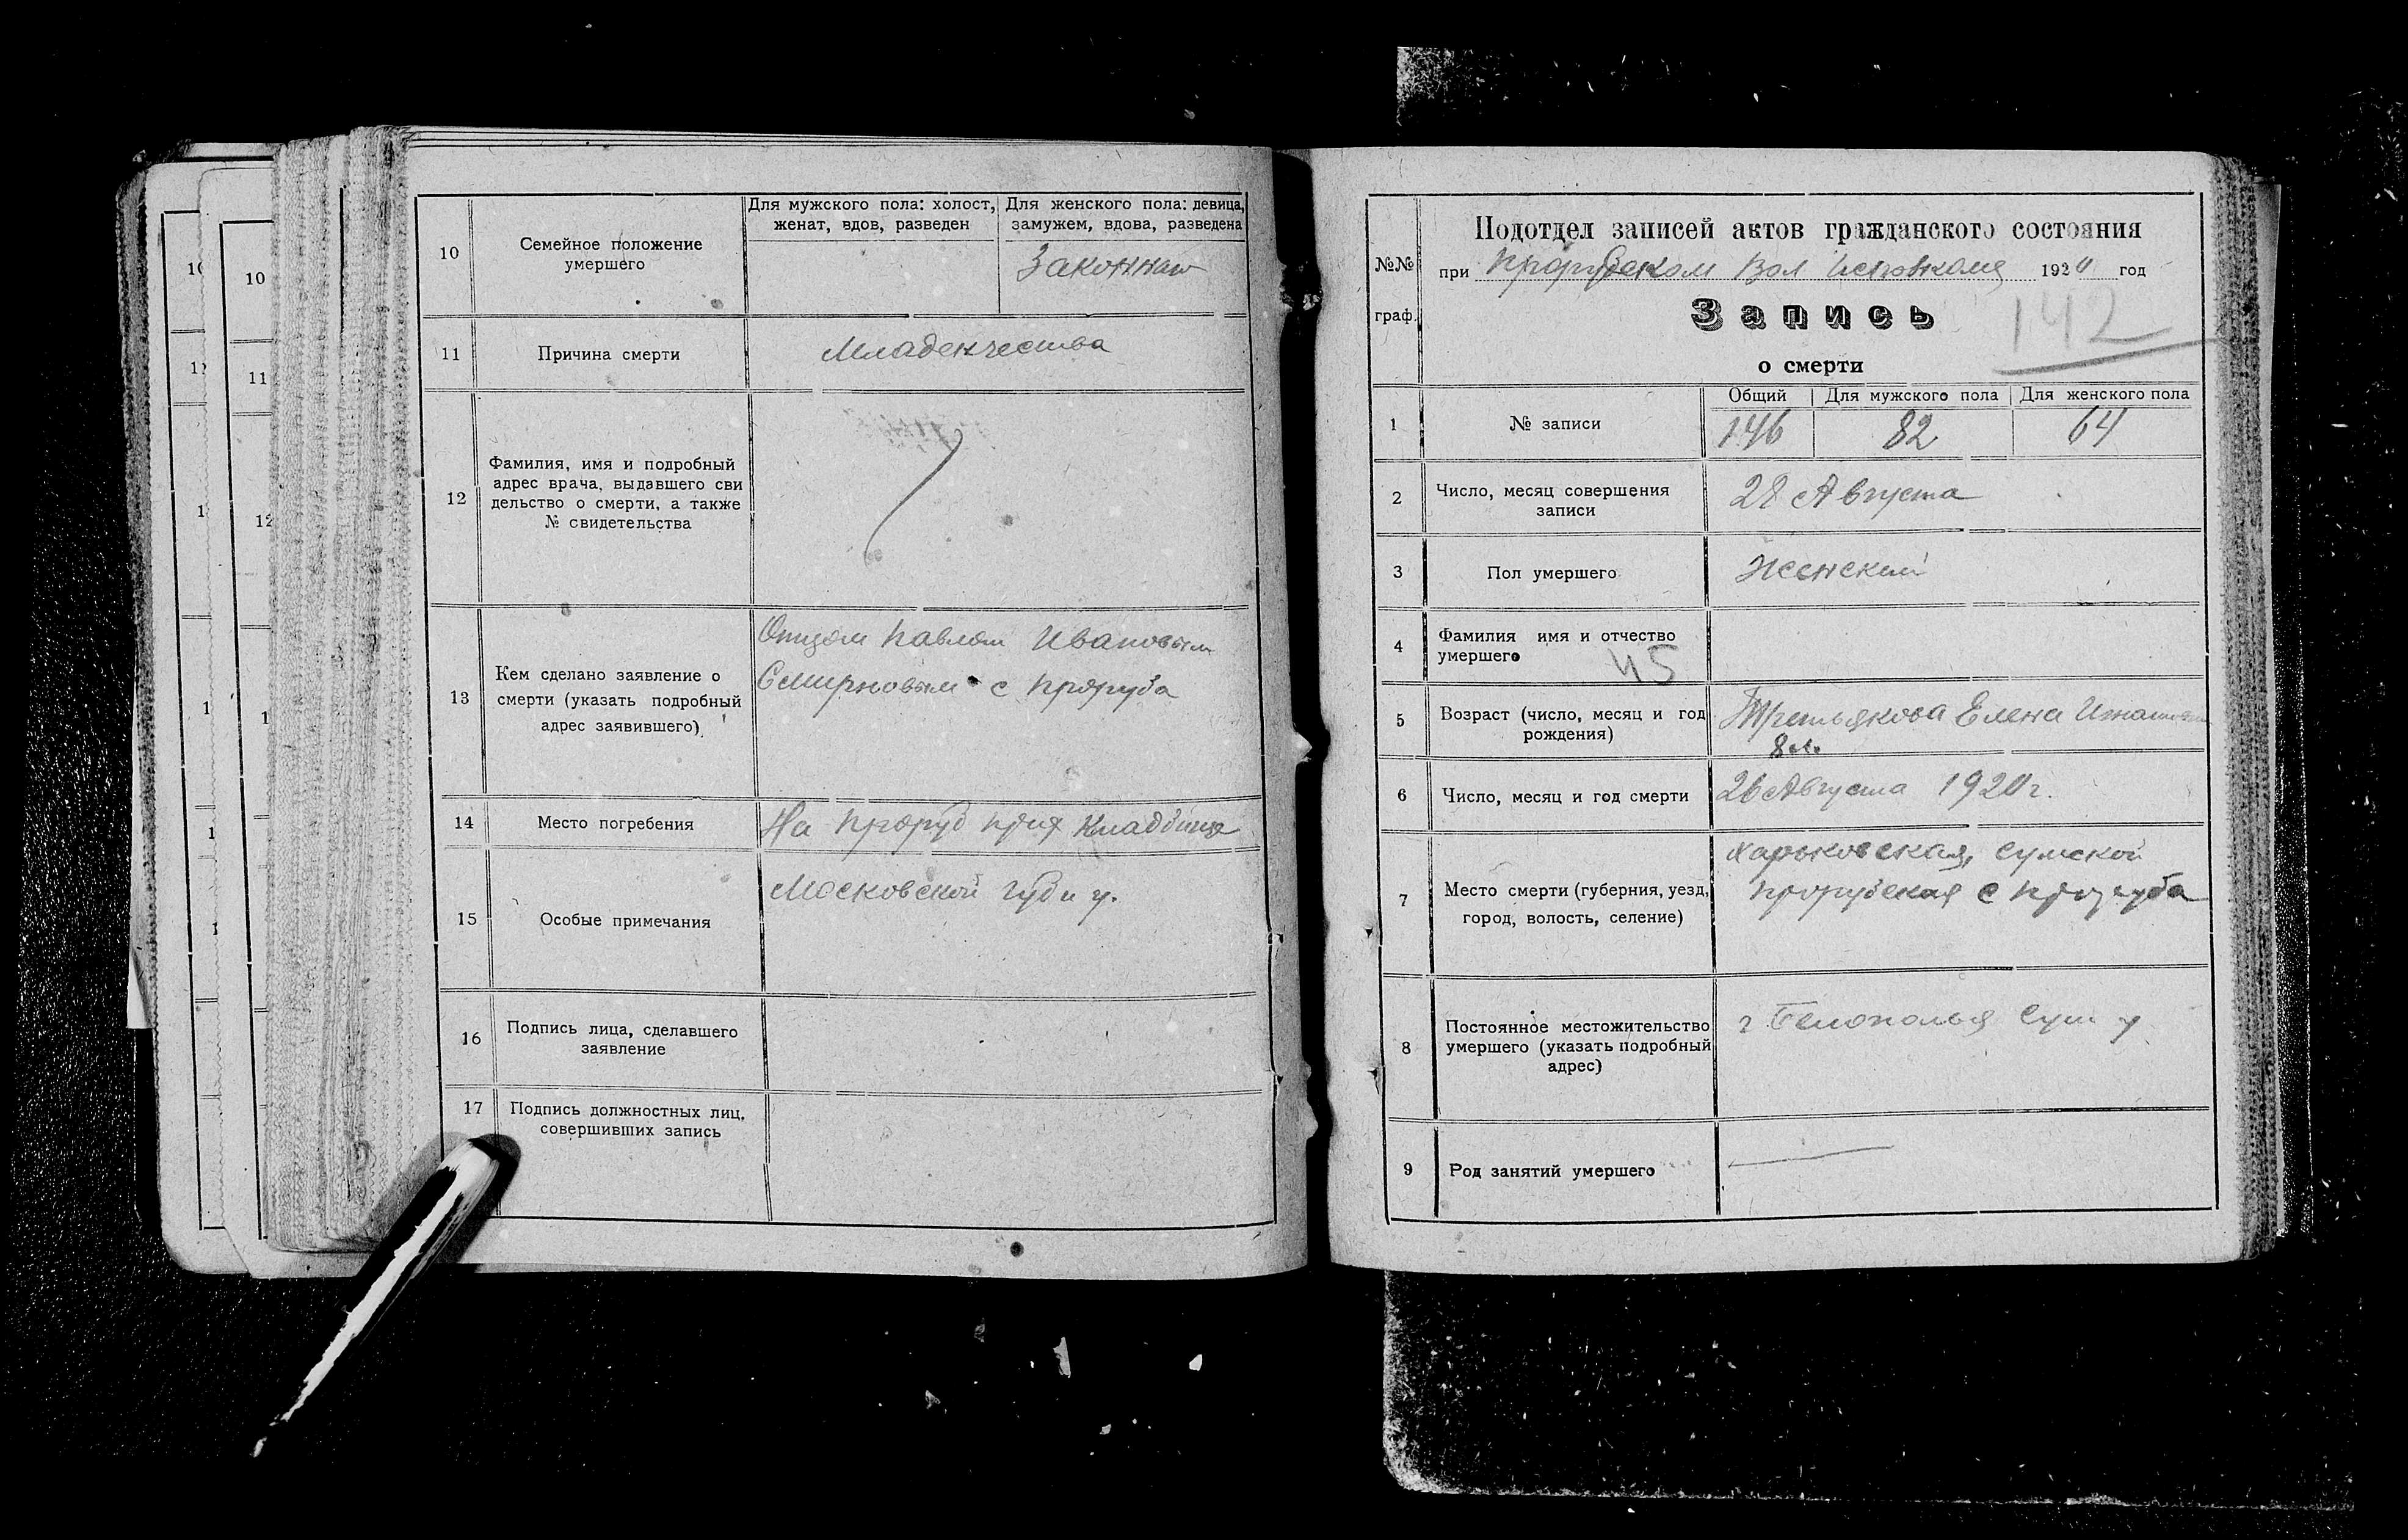 10
Семейное положение
умершего
Для мужского пола: холост,
женат, вдов, разведен
Для женского пола: девица,
замужем, вдова, разведена
Законная
11
Причина смерти
Младенчества
12
Фамилия, имя и подробный
адрес врача, выдавшего сви
дельство о смерти, а также
№ свидетельства
13
Кем сделано заявление о
смерти (указать подробный
адрес заявившего)
Отцом Павлом Ивановым
Смирновым с Проруба
14
Место погребения
На Проруб Кладбище
15
Особые примечания
Московской губ и у.
16
Подпись лица, сделавшего
заявление
17
Подпись должностных лиц,
совершивших запись
10
11
12
№№
граф.
Подотдел записей актов гражданского состояния
при Прорубском Вол Исполкоме 1920 год
Запись
142
о смерти
1
№ записи
Общий
Для мужского пола
Для женского пола
146
82
64
2
Число, месяц совершения
записи
28 Августа
3
Пол умершего
Женский
4
Фамилия имя и отчество
умершего
45
5
Возраст (число, месяц и год
рождения)
Третьякова Елена
8 м.
6
Число, месяц и год смерти
26 Августа 1920 г.
7
Место смерти (губерния, уезд,
город, волость, селение)
Харьковская, Сумской
Прорубская с Проруба
8
Постоянное местожительство
умершего (указать подробный
адрес)
г Белополья Сум у
9
Род занятий умершего